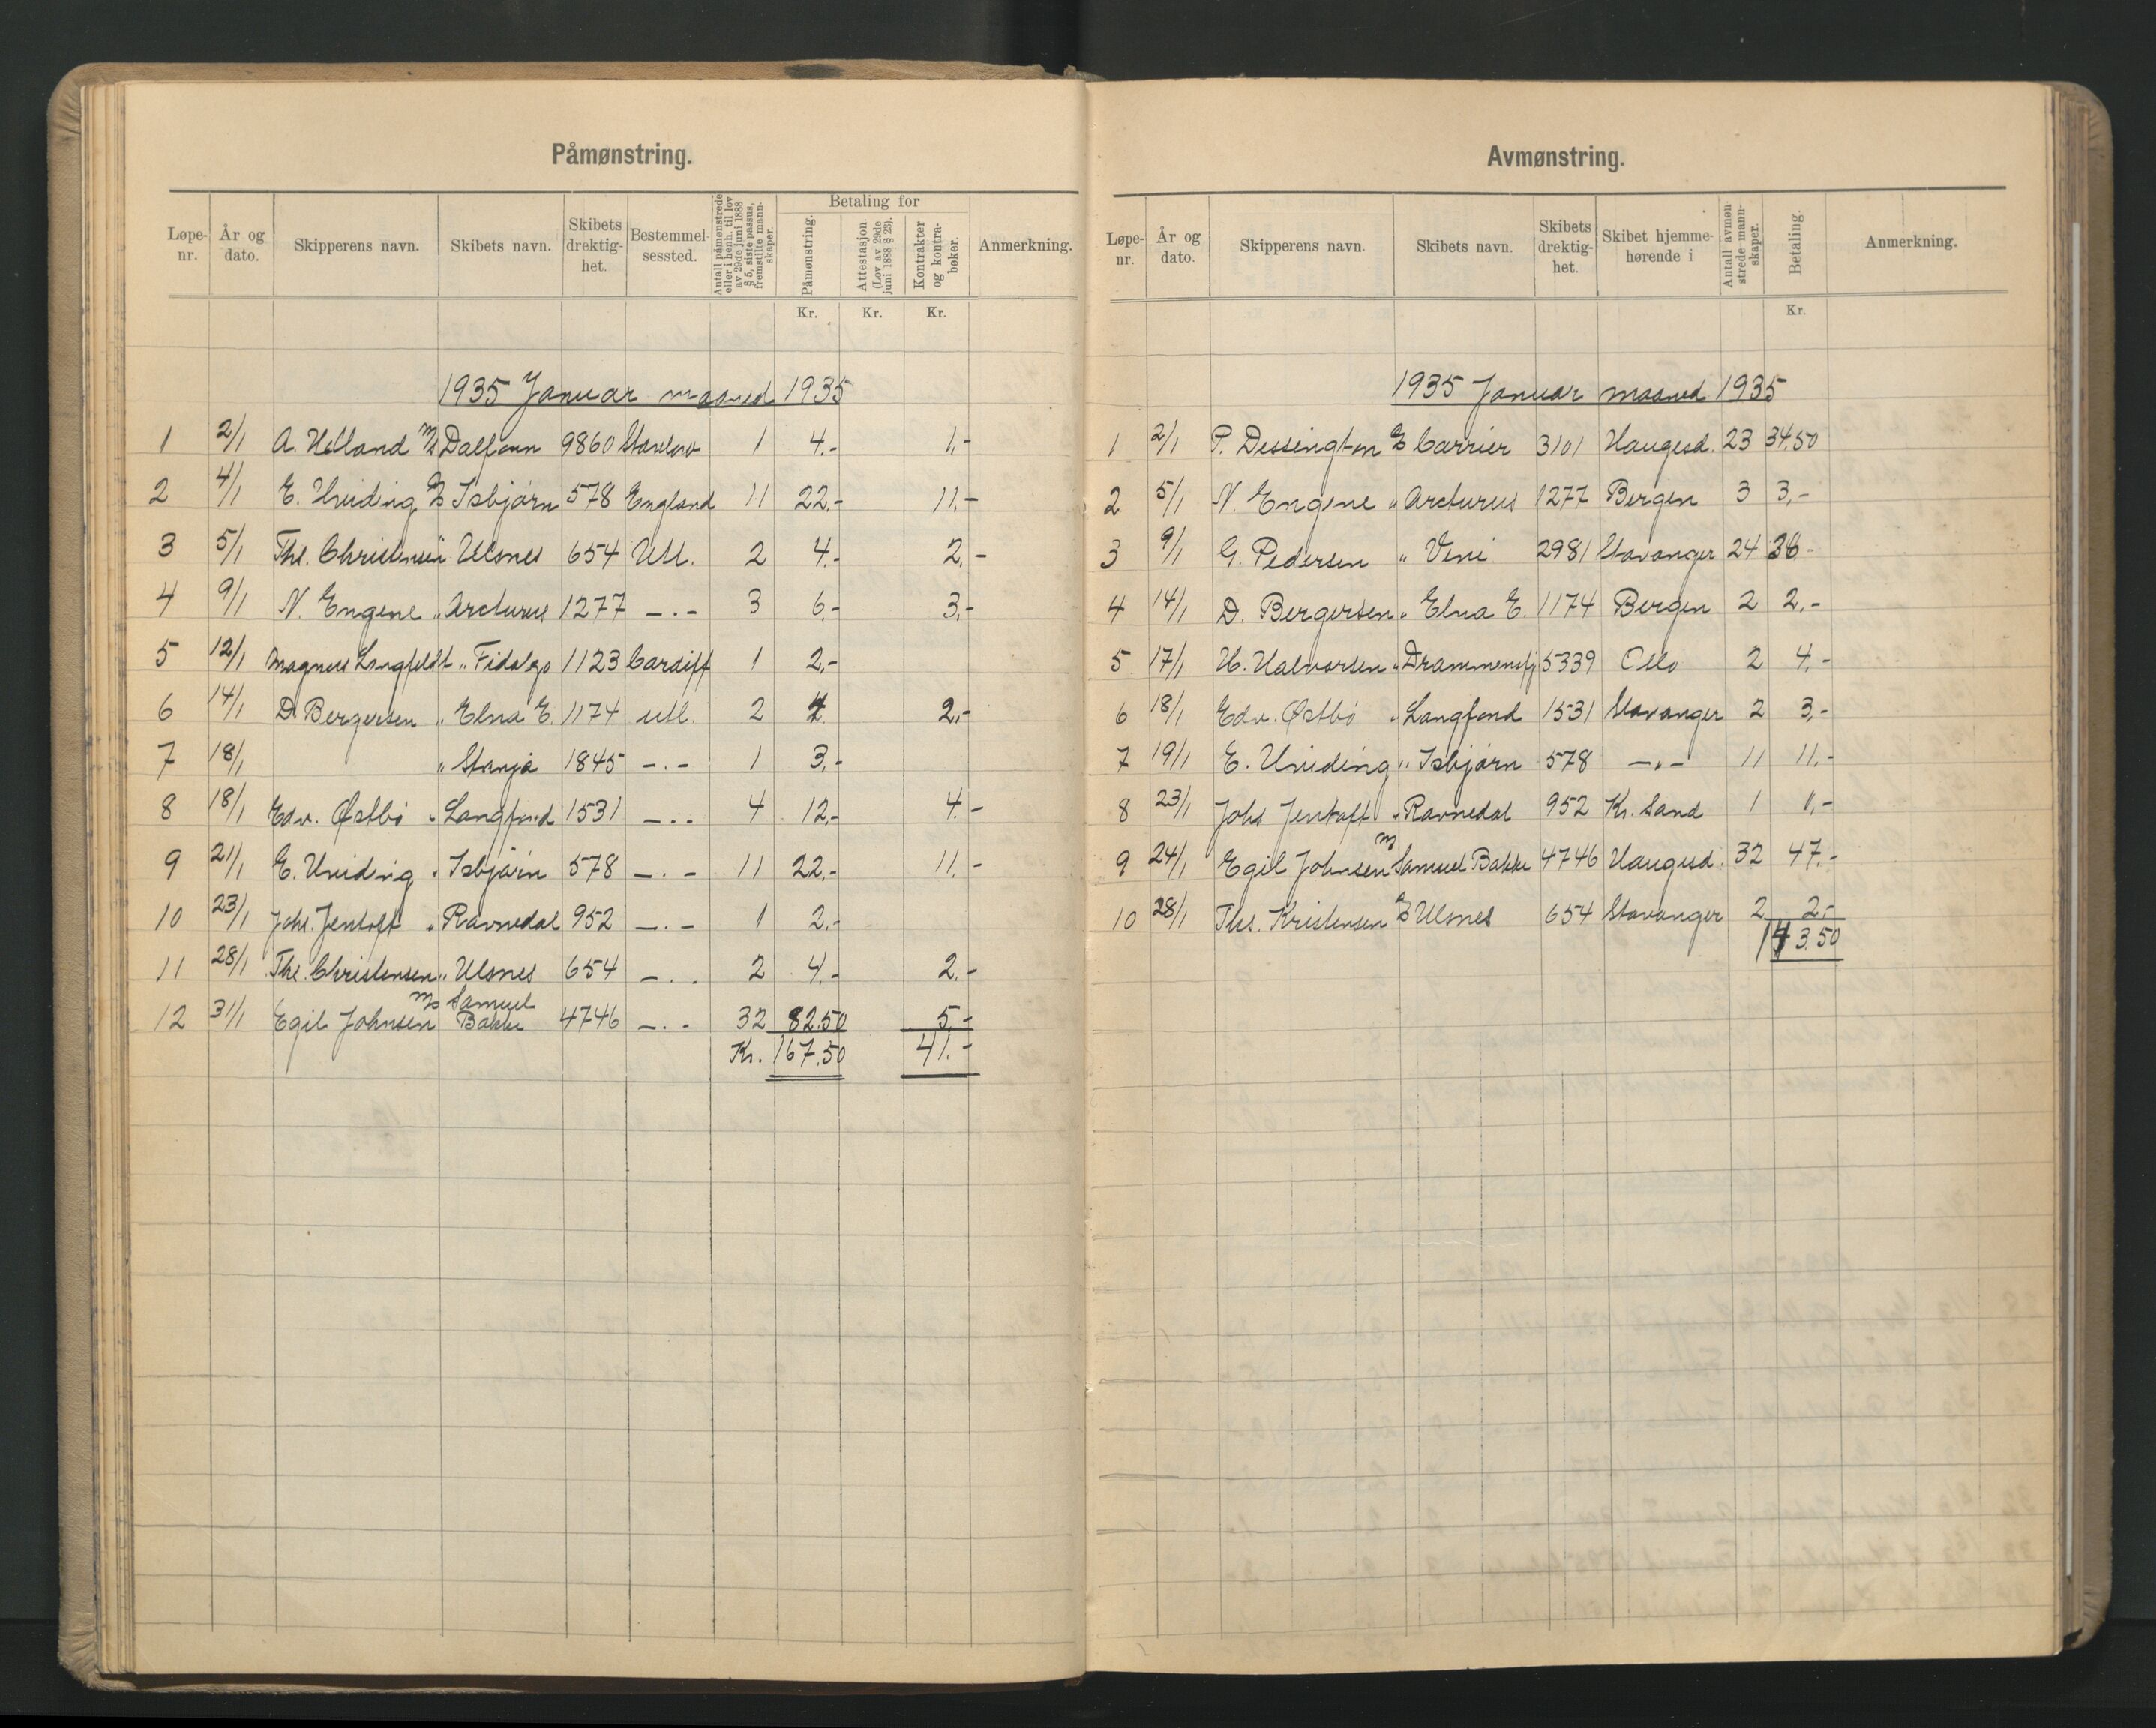 Påmønstring.
Løpe-nr. År og dato. Skipperens navn. Skibets navn. Skibets drektig-het. Bestemmel-sessted. Antall påmønstrede eller i henh. til lov av 29de juni 1888 § 5, siste passus, fremstilte mann-skaper. Betaling for Påmønstring. Attestasjon (Lov av 29de juni 1888 § 23). Kontrakter og kontra-bøker. Anmerkning.
Kr. Kr. Kr.
1935 Januar maaned 1935
1 2/1 A. Helland M/S Dalfonn 9860 1 4.- 1,-
2 4/1 E. Hviding D/S Isbjørn 578 England 11 22.- 11.-
3 5/1 Ths. Christensen " Ulsnes 654 Utl. 2 4.- 2.-
4 9/1 N. Engene " Arcturus 1277 -.- 3 6.- 3.-
5 12/1 Magnus Langfeldt " Fidelgo 1123 Cardiff 1 2.-
6 14/1 D. Bergersen " Elna E. 1174 utl. 2 4 2.-
7 18/1 " Stanja 1845 -.- 1 3.-
8 18/1 Edv. Østbö " Langfond 1531 -.- 4 12.- 4.-
9 21/1 E. Hviding " Isbjørn 578 -.- 11 22.- 11.-
10 23/1 Johs. Jentoft " Ravnedal 952 -.- 1 2.-
11 28/1 Ths. Christensen " Ulsnes 654 -.- 2 4.- 2.-
12 31/1 Egil Johnsen M/S Samuel Bakke 4746 -.- 32 82.50 5.-
Kr. 167.50 41.-
Avmønstring.
Løpe-nr. År og dato. Skipperens navn. Skibets navn. Skibets drektig-het. Skibet hjemme-hørende i Antall avmøn-strede mann-skaper. Betaling. Anmerkning.
Kr.
1935 Januar maaned 1935
1 2/1 P. Dessington D/S Carrier 3101 Haugesd. 23 34.50
2 5/1 N. Engene " Arcturus 1277 Bergen 3 3,-
3 9/1 G. Pedersen " Veni 2981 Stavanger 24 36-
4 14/1 D. Bergersen " Elna E. 1174 Bergen 2 2.-
5 17/1 H. Halvorsen " Drammensfj 5339 Oslo 2 4.-
6 18/1 Edv. Østbö " Langfond 1531 Stavanger 2 3,-
7 19/1 E. Hviding " Isbjørn 578 -.- 11 11.-
8 23/1 Johs Jentoft " Ravnedal 952 Kr. Sand 1 1,-
9 24/1 Egil Johnsen M/S Samuel Bakke 4746 Haugesd. 32 47.-
10 28/1 Ths. Kristensen D/S Ulsnes 654 Stavanger 2 2.-
143.50